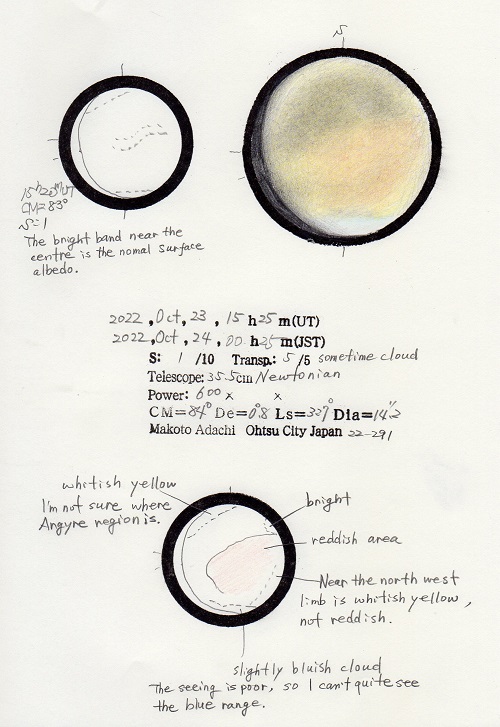 S
15h20mUT
CM=83°
S=1
The bright band near the
centre is the nomal surface
albedo.
2022, Oct, 23, 15 h25 m(UT)
2022, Oct, 24, 00 h25 m(JST)
S: 1 /10 Transp.: 5 /5 sometime cloud
Telescope: 35.5cm Newtonian
Power: 600 x x
CM=84° De=0.8 Ls=327° Dia=14"2
Makoto Adachi Ohtsu City Japan 22-291
whitish yellow
I'm not sure where
Angyre region is.
bright
reddish area
Near the north west
limb is whitish yellow,
not reddish.
slightly bluish cloud
The seeing is poor, so I can't quite see
the blue range.